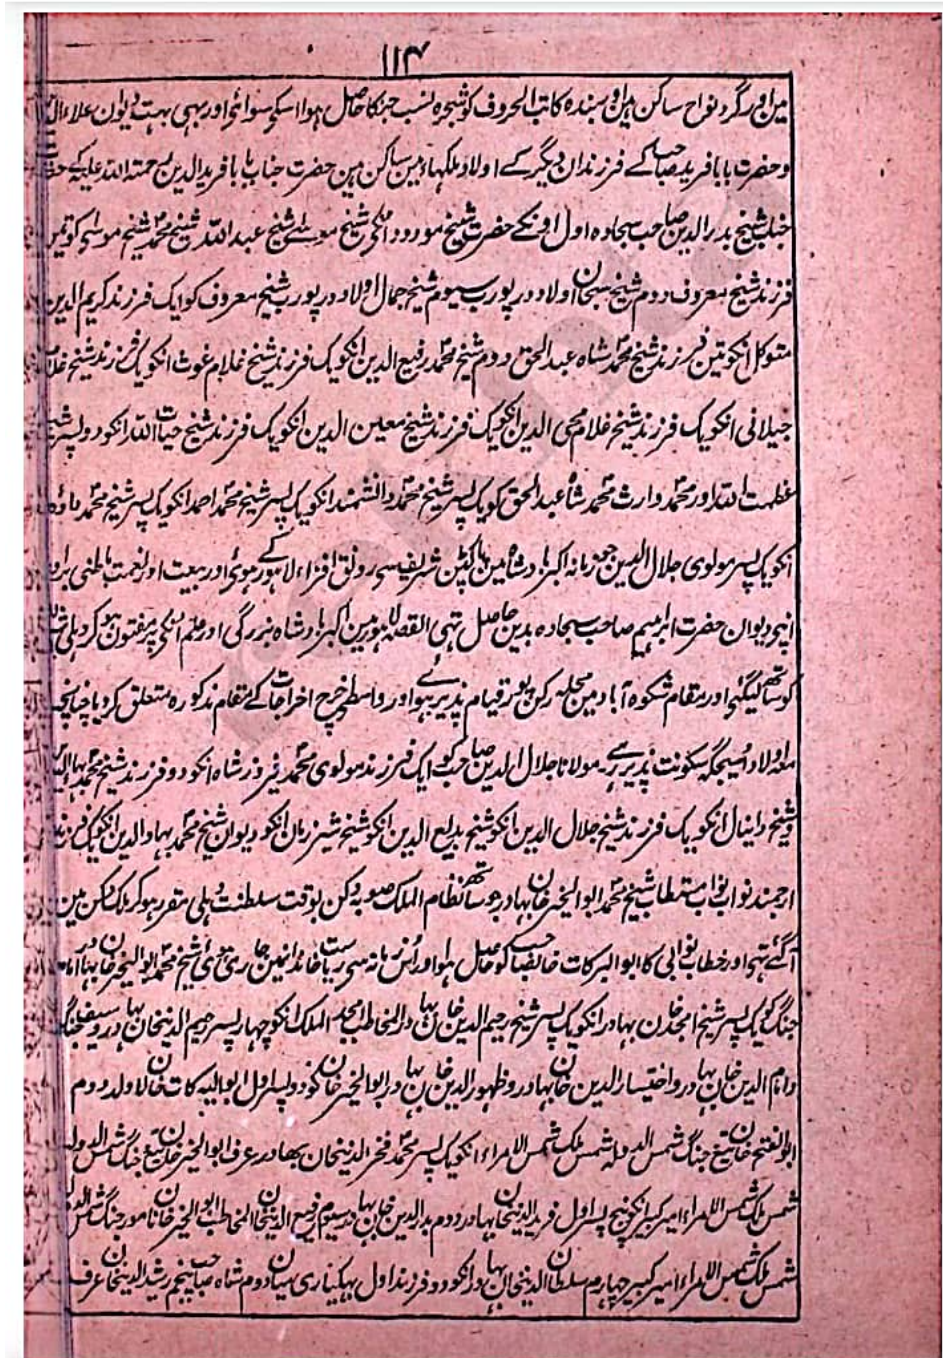 ۱۱۴
مین اور گرد نواح ساکن ہین اور بندہ کاتب الحروف کو شجرہ نسب جنکا حاصل ہوا اسکے سوائے اور بہی بہت دیوان علاء
و حضرت بابا فرید صاحب کے فرزندان دیگر کے اولاد ملکہاء مین ساکن ہین حضرت جناب بابا فرید الدین رحمتہ اللہ علیہ کے
جناب شیخ بدر الدین صاحب سجادہ اول اونکے حضرت شیخ مودود انکی شیخ موسے شیخ عبد اللہ شیخ محمد شیخ موسی کو تین
فرزند شیخ معروف دوم شیخ سبحان اولاد در پورب سیوم شیخ جمال اولاد در پورب شیخ معروف کو ایک فرزند کریم الدین
متوکل انکو تین فرزند شیخ محمد شاہ عبد الحق دوم شیخ محمد رفیع الدین انکو یک فرزند شیخ غلام غوث انکو یک فرزند شیخ غلام
جیلانی انکو یک فرزند شیخ غلام محی الدین انکو یک فرزند شیخ معین الدین انکو یک فرزند شیخ حیات اللہ انکو دو پسر شیخ
عظمت اللہ اور محمد وارث محمد شاہ عبد الحق کو یک پسر شیخ محمد دانشمند انکو یک پسر شیخ محمد احمد انکو یک پسر شیخ محمد داؤد
انکو یک پسر مولوی جلال الدین جو زمانہ اکبر بادشاہ مین پاکپٹن شریف سی رونق افزاء لاہور کے ہوئی اور بیعت اور نعمت باطنی
اپنی دیوان حضرت ابراہیم صاحب سجادہ بدین حاصل تہی القصہ لاہور مین اکبر بادشاہ بزرگی اور علم انکی پر مفتون ہو کر دہلی
کو ساتھ لیگئے اور مقام شکوہ آباد مین محلہ رکن پور قیام پذیر ہوئے اور واسطے خرچ اخراجات کے مقام مذکورہ متعلق کر دیا چنانچہ
معہ اولاد اُسیجگہ سکونت پذیر رہے۔ مولانا جلال الدین صاحب کو ایک فرزند مولوی محمد فیروز شاہ انکو دو فرزند شیخ محمد بہاالدین
و شیخ دانیال انکو یک فرزند شیخ جلال الدین انکو شیخ بدیع الدین انکو شیخ شیر زمان انکو دیوان شیخ محمد بہاو الدین انکو یک فرزند
ارجمند نواب مستطاب شیخ محمد ابو الخیر خان بہادر جو ساتھ نظام الملک صوبہ دکن بوقت سلطنت دہلی مقرر ہو کر ملک دکن مین
آگئے تہی اور خطاب نوابی کا ابو البرکات خانصاحب کو حاصل ہوا اور اُس زمانہ سی ریاست خاندانہین جاری ہوئی شیخ محمد ابو الخیر خان بہادر امام
جنگ کو یک پسر شیخ امجد خان بہادر انکو یک پسر شیخ رحیم الدین خان بہادر المخاطب مجد الملک انکو چہار پسر رحیم الدینخان بہادر و سیف جنگ
و امام الدین خان بہادر و اختیار الدین خان بہادر و ظہور الدین خان بہادر ابو الخیر خان کو دو پسر اول ابو البرکات خان لاولد دوم
ابو الفتح خان تیغ جنگ شمس الدولہ شمس الملک شمس الامراء انکو یک پسر محمد فخر الدینخان بہادر عرف ابو الخیر خان تیغ جنگ شمس الدولہ
شمس الملک شمس الامراء امیر کبیر انکو پنج پسر اول فرید الدینخان بہادر دوم بدر الدین خان بہادر سیوم رفیع الدینخان المخاطب ابو الخیر خان نامور جنگ شمس الدولہ
شمس الملک شمس الامراء امیر کبیر چہارم سلطان الدینخان بہادر انکو دو فرزند اول بہکیاری میان دوم شاہ صاحب پنجم رشید الدینخان عرف